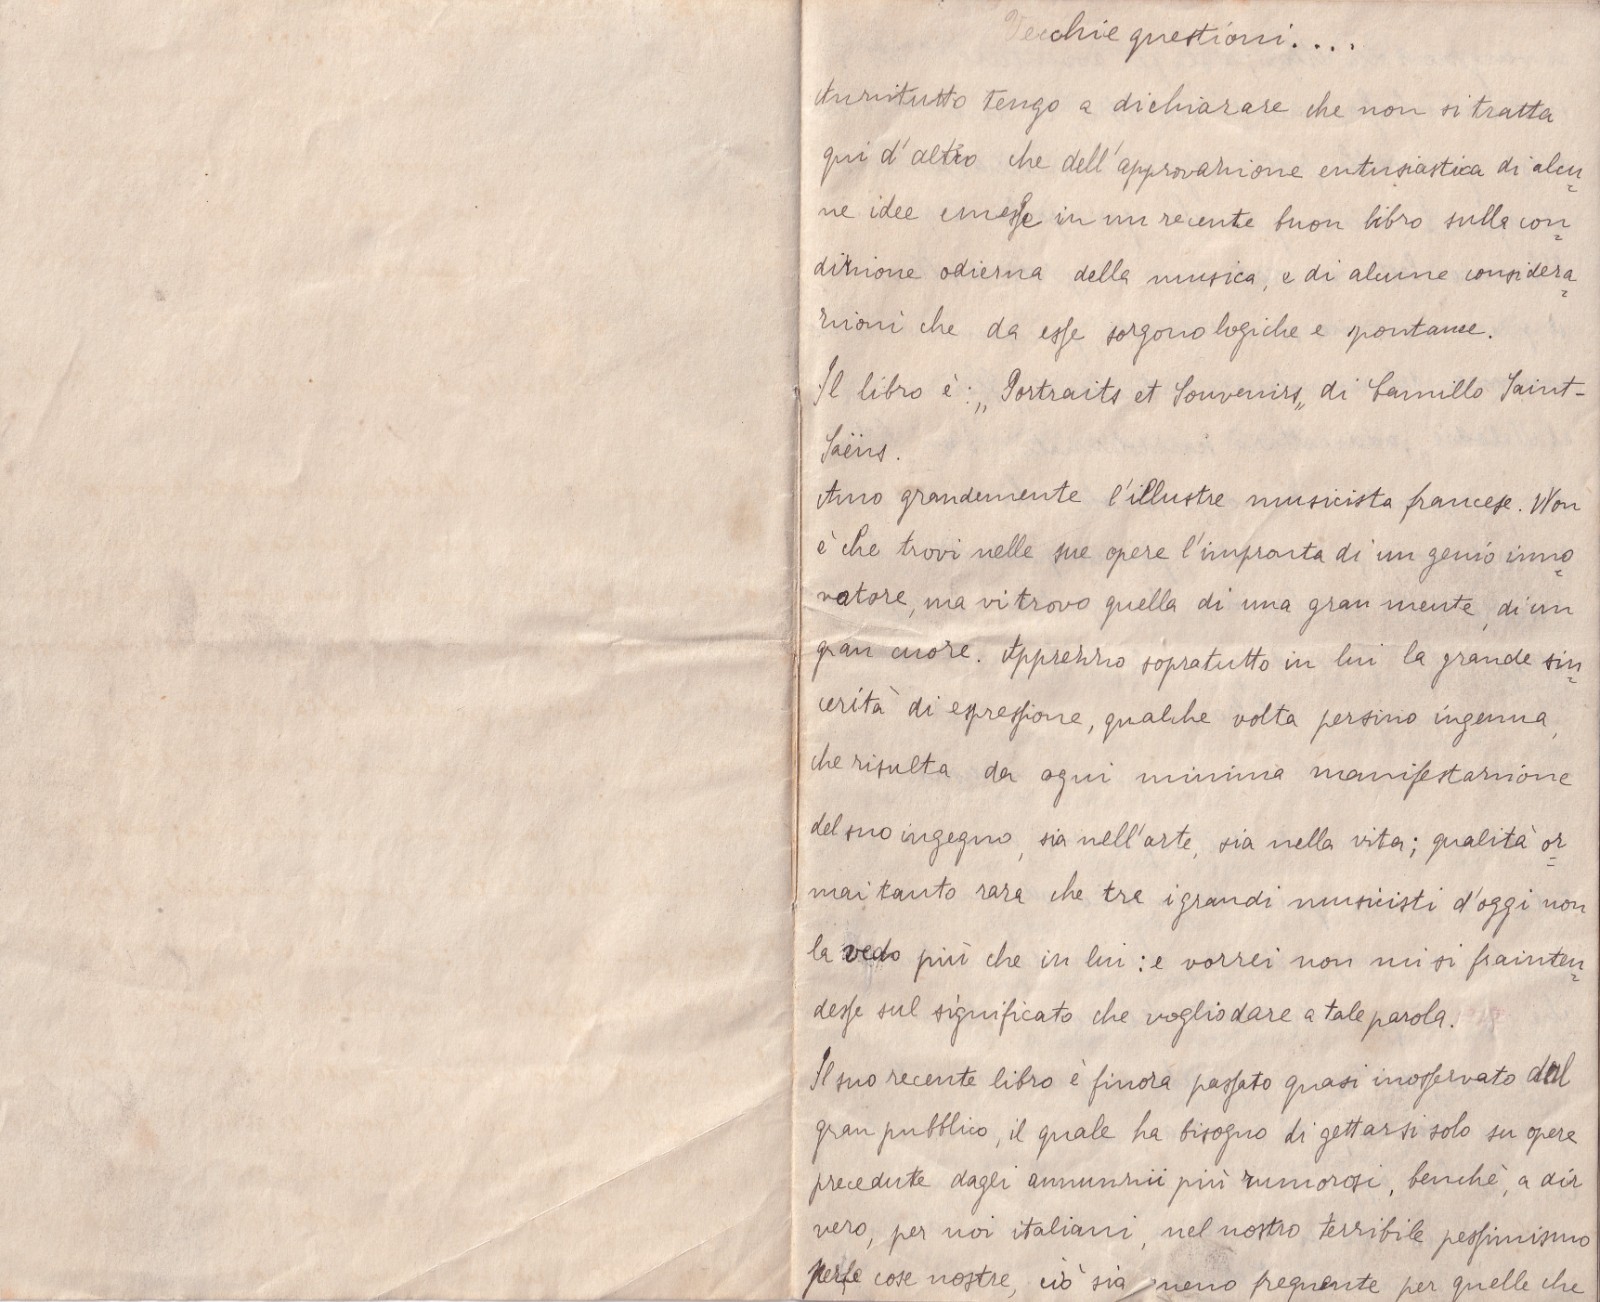 Vecchie questioni....
Anzitutto tengo a dichiarare che non si tratta
qui d'altro che dell'approvazione entusiastica di alcu=
ne idee emesse in un recente buon libro sulla con=
dizione odierna della musica, e di alcune considera=
zioni che da esse sorgono logiche e spontanee.
Il libro è: „Portraits et Souvenirs„ di Camillo Saint-
Saëns.
Amo grandemente l'illustre musicista francese. Non
è che trovi nelle sue opere l'impronta di un genio inno=
vatore, ma vi trovo quella di una gran mente, di un
gran cuore. Apprezzo sopratutto in lui la grande sin=
cerità di espressione, qualche volta persino ingenua,
che risulta da ogni minima manifestazione
del suo ingegno, sia nell'arte, sia nella vita; qualità or=
mai tanto rara che tra i grandi musicisti d'oggi non
la vedo più che in lui: e vorrei non mi si frainten=
desse sul significato che voglio dare a tale parola.
Il suo recente libro è finora passato quasi inosservato dal
gran pubblico, il quale ha bisogno di gettarsi solo su opere
precedute dagli annunzii più rumorosi, benchè, a dir
vero, per noi italiani, nel nostro terribile pessimismo
per le cose nostre, ciò sia meno frequente per quelle che